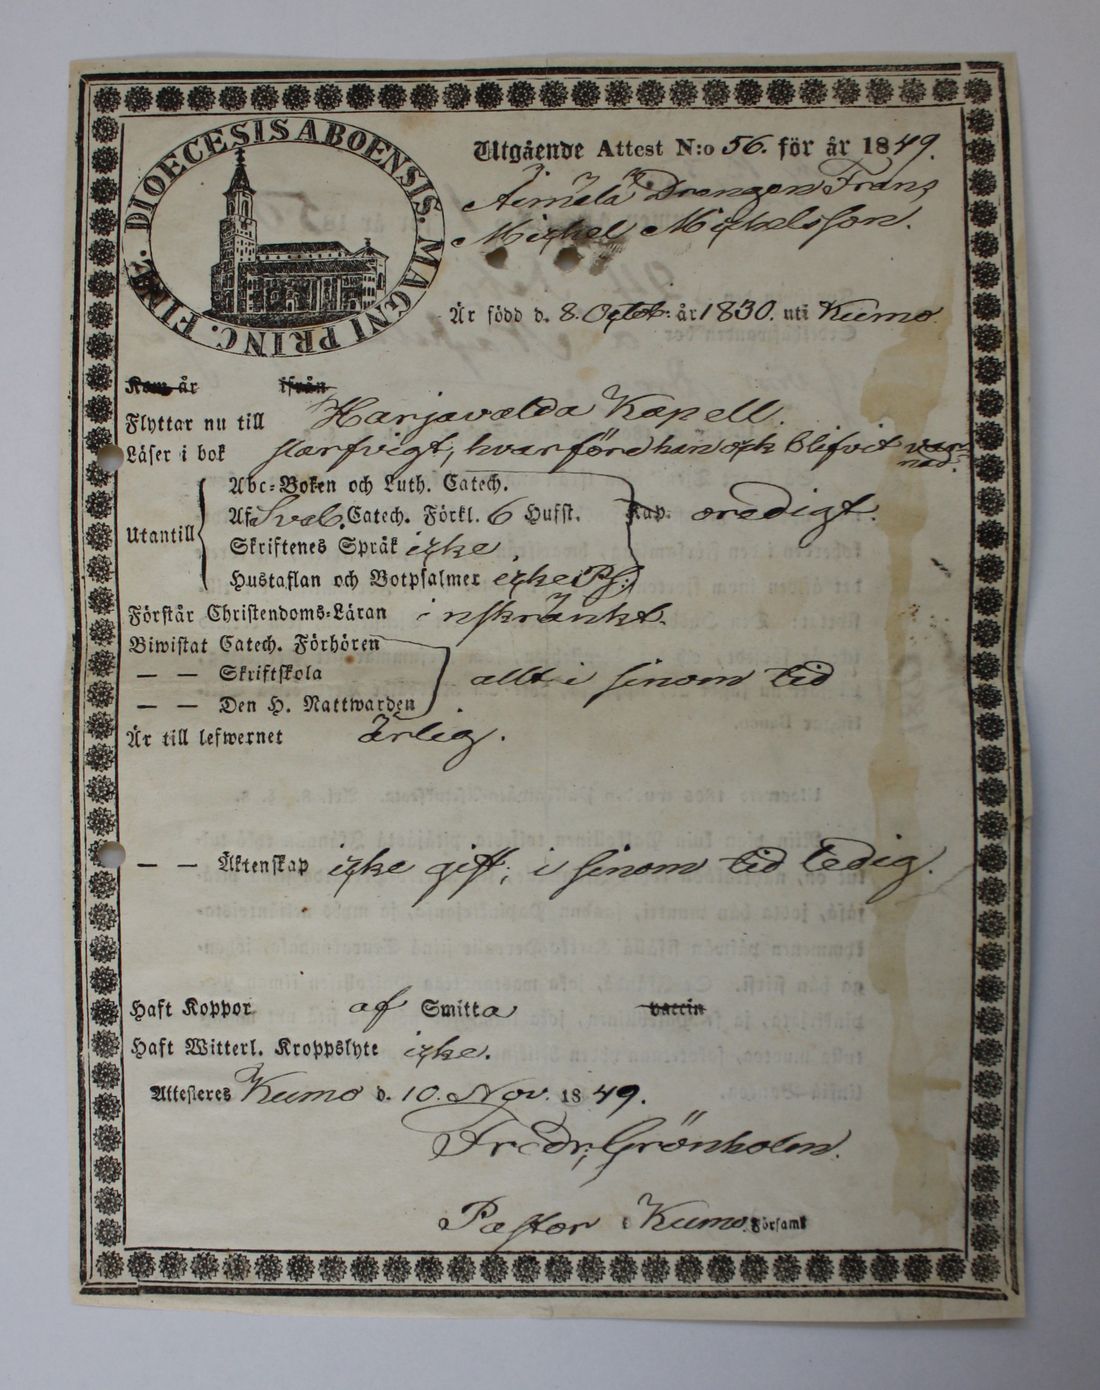 DIOECESIS ABOENSIS. MAGNI PRINC. FINL.
Utgående Attest N:o 56. för år 1849.
Drengen Frans
Michel Michelsson.
Är född d. 8. Octob: år 1830. uti Kumo
Kom år ifrån
Flyttar nu till Harjavalda Kapell.
Läser i bok slarfvigt, hvarföre han ock blifvit var-
nad.
Abc-Boken och Luth. Catech.
Utantill Af Sveb. Catech. Förkl. 6 Hufst. Kap. oredigt.
Skriftenes Språk icke
Hustaflan och Botpsalmer icke Ps:
Förstår Christendoms-Läran inskränkt.
Biwistat Catech. Förhören
— — Skriftskola allt i sinom tid
— — Den H. Nattwarden
Är till lefwernet ärlig.
— — Äktenskap icke gift, i sinom tid ledig.
Haft Koppor af Smitta vaccin
Haft Witterl. Kroppslyte icke.
Attesteres Kumo d. 10. Nov. 1849.
Fredr. Grönholm.
Pastor i Kumo Församl